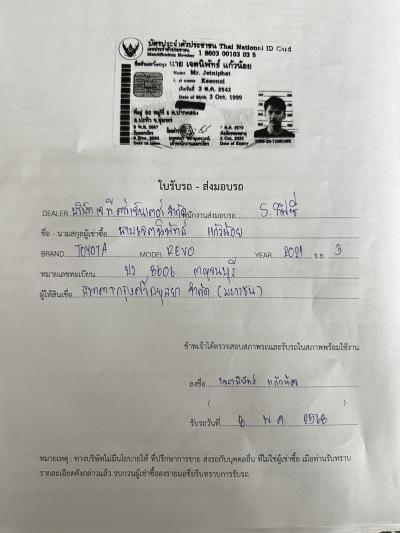 บัตรประจำตัวประชาชน Thai National ID Card
เลขประจำตัวประชาชน
Identification Number 1 8603 00103 03 5
ชื่อตัวและชื่อสกุล นาย เจตนิพัทธ์ แก้วน้อย
Name Mr. Jetniphat
Last name Kaeonoi
เกิดวันที่ 3 ต.ค. 2542
Date of Birth 3 Oct. 1999
ใบรับรถ - ส่งมอบรถ
DEALER บริษัท เจ.ที. จำกัด พนักงานส่งมอบรถ
ชื่อ - นามสกุลผู้เช่าซื้อ นายเจตนิพัทธ์ แก้วน้อย
BRAND TOYOTA MODEL REVO YEAR 2021 ร.ย. 3
หมายเลขทะเบียน 8606 กาญจนบุรี
ผู้ให้สินเชื่อ ธนาคารกรุงศรีอยุธยา จำกัด (มหาชน)
ข้าพเจ้าได้ตรวจสอบสภาพรถและรับรถในสภาพพร้อมใช้งาน
ลงชื่อ เจตนิพัทธ์ แก้วน้อย
( )
รับรถวันที่ 6 พ.ค. 2568
หมายเหตุ : ทางบริษัทไม่มีนโยบายให้ ที่ปรึกษาการขาย ส่งรถกับบุคคลอื่น ที่ไม่ใช่ผู้เช่าซื้อ เมื่อท่านรับทราบ
รายละเอียดดังกล่าวแล้ว รบกวนผู้เช่าซื้อลงรายมือชื่อรีบทราบการรับรถ